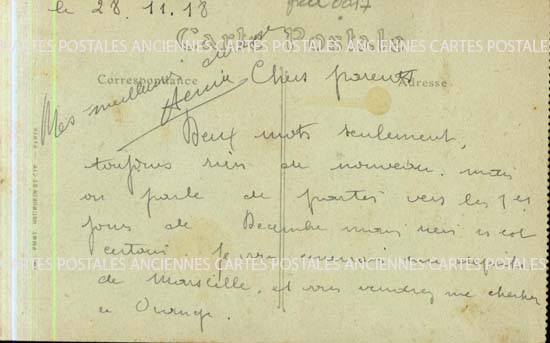 le 28.11.18
Carte Postale
CARTES POSTALES ANCIENNES CARTES POSTALES ANCIENNES CARTES POSTALES
Correspondance
Adresse
Mes meilleurs
Chers parents
Deux mots seulement,
toujours rien de nouveau. mais
on parle de partir vers les 1er
jours de Decembre mais rien est
CARTES POSTALES ANCIENNES CARTES POSTALES ANCIENNES CARTES POSTALES
certain. Je vous
de Marseille, et vous viendrez me chercher
a Orange.